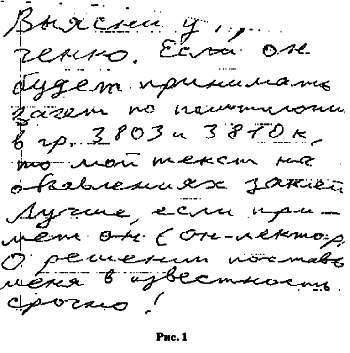 Выясни у . . ,
ченко. Если он
будет принимать
зачет по
в гр. 3803 и 3810 к,
то мой текст на
объявлениях заклей
Лучше, если при-
мет он (он-лектор)
О решении поставь
меня в известность
срочно!
Рис. 1